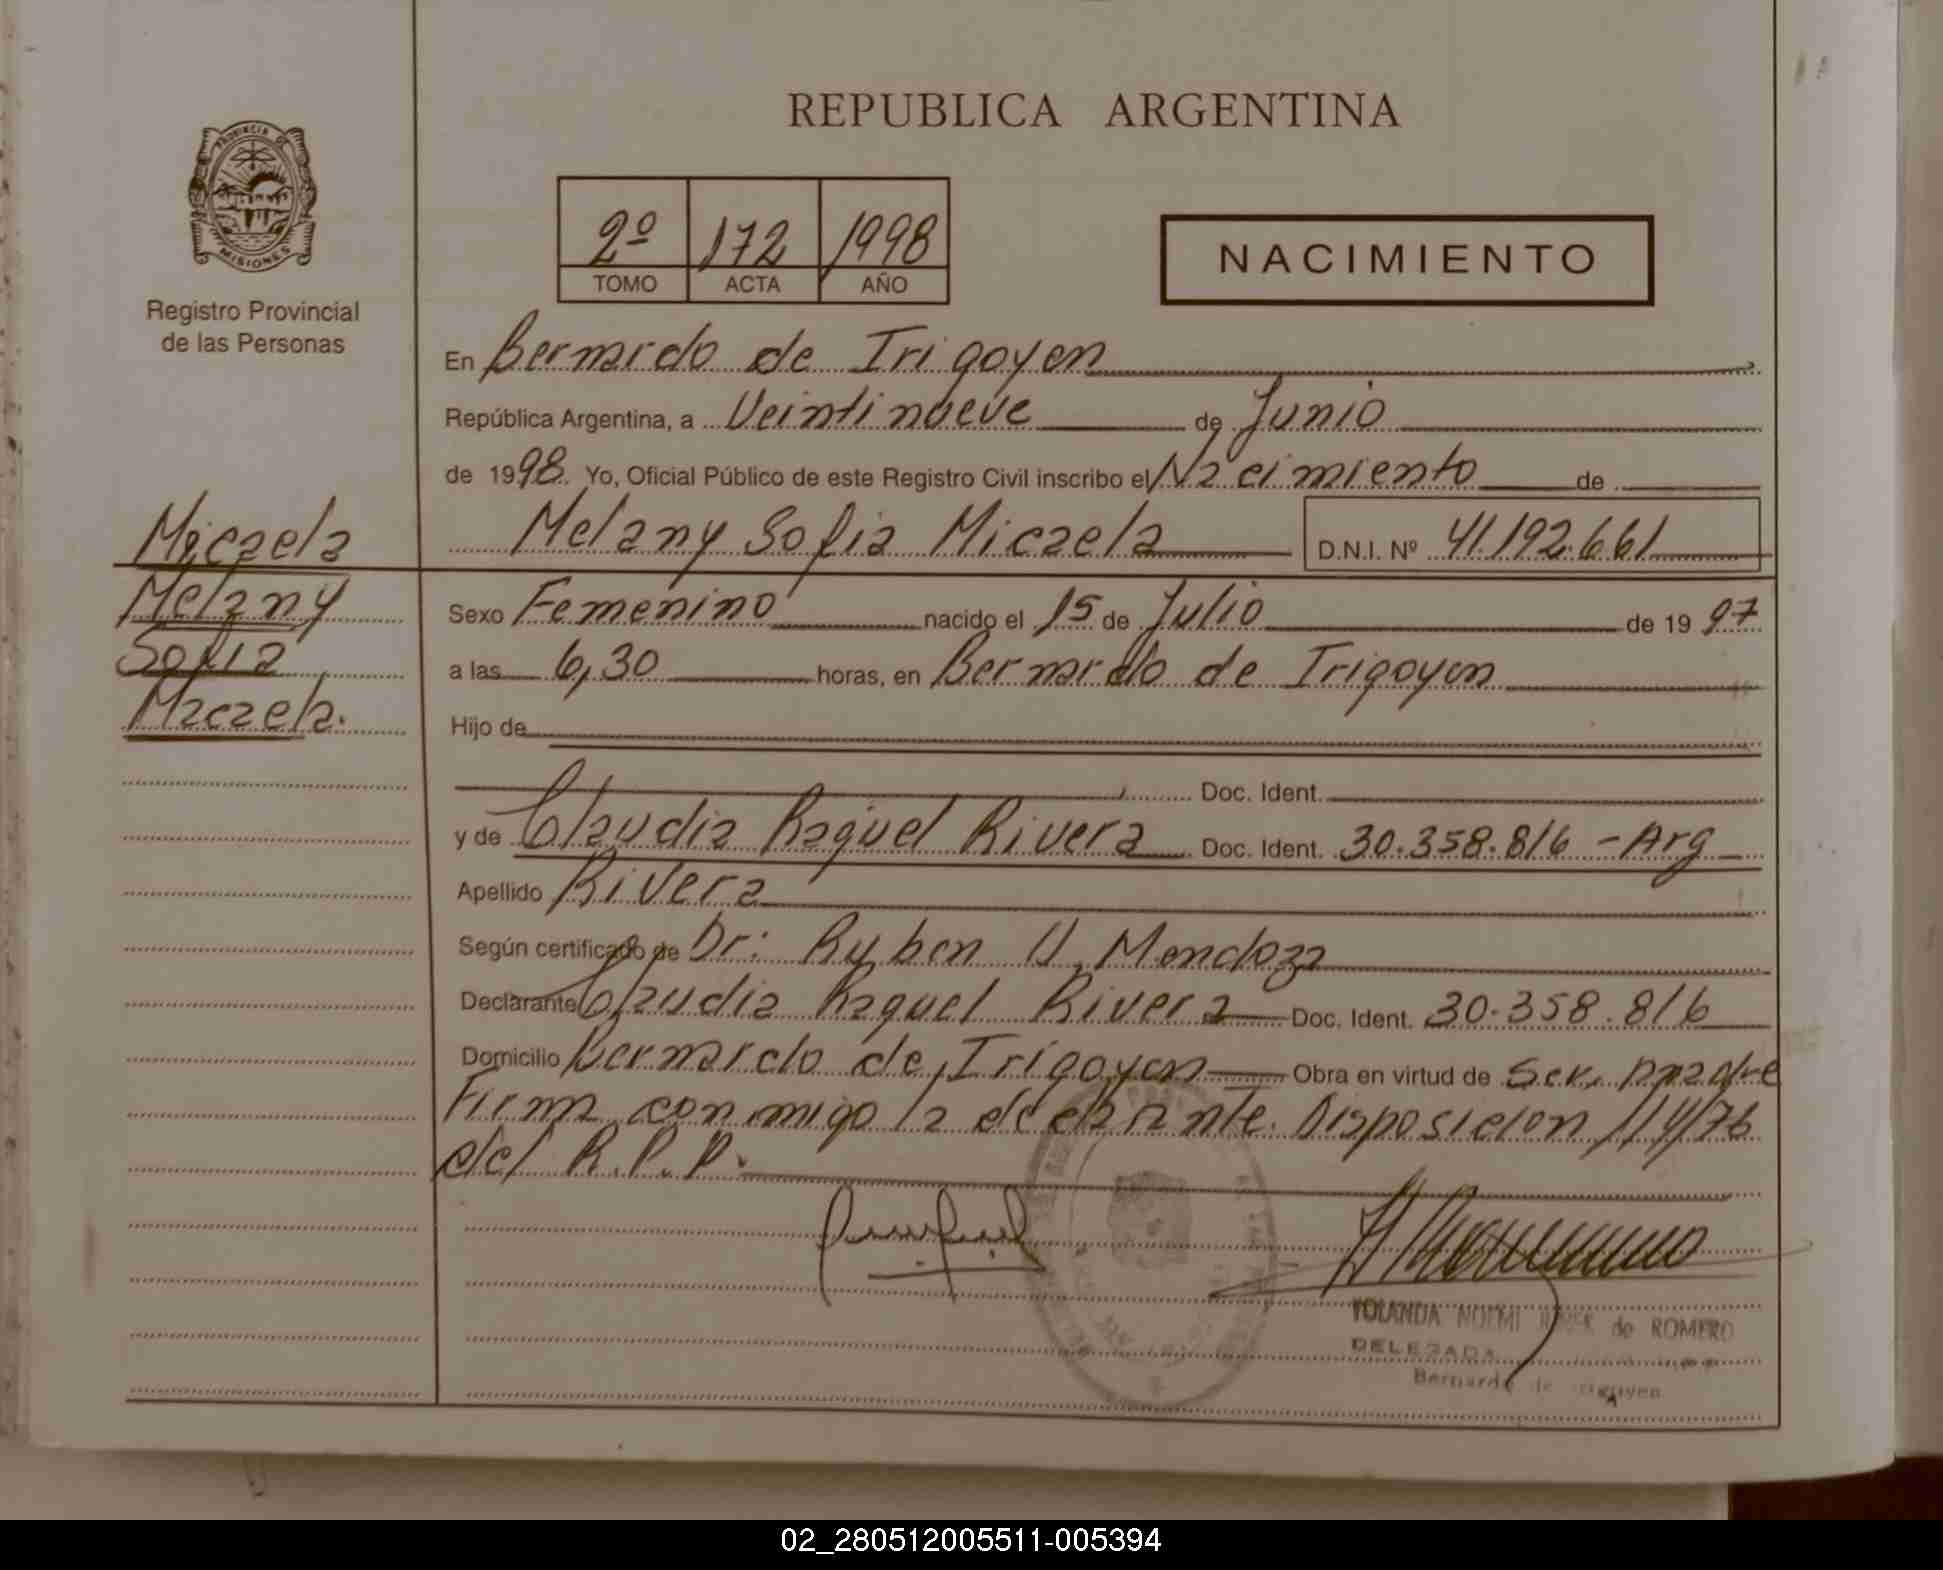 REPUBLICA ARGENTINA
PROVINCIA DE MISIONES
Registro Provincial
de las Personas
2º 172 1998
TOMO ACTA AÑO
NACIMIENTO
En Bernardo de Irigoyen
República Argentina, a Veintinueve de Junio
de 1998. Yo, Oficial Público de este Registro Civil inscribo el Nacimiento de
Melany Sofia Micaela D.N.I. Nº 41.192.661
Micaela
Melany
Sofia
Macaela.
Sexo Femenino nacido el 15 de Julio de 1997
a las 6,30 horas, en Bernardo de Irigoyen
Hijo de
Doc. Ident.
y de Claudia Raquel Rivera Doc. Ident. 30.358.816 - Arg
Apellido Rivera
Según certificado de Dr: Ruben Mendoza
Declarante Claudia Raquel Rivera Doc. Ident. 30.358.816
Domicilio Bernardo de Irigoyen Obra en virtud de Ser
Firma conmigo la declarante. Disposicion 114/76
del R.P.P.
YOLANDA NOEMI de ROMERO
DELEGADA
Bernardo de Irigoyen
02_280512005511-005394